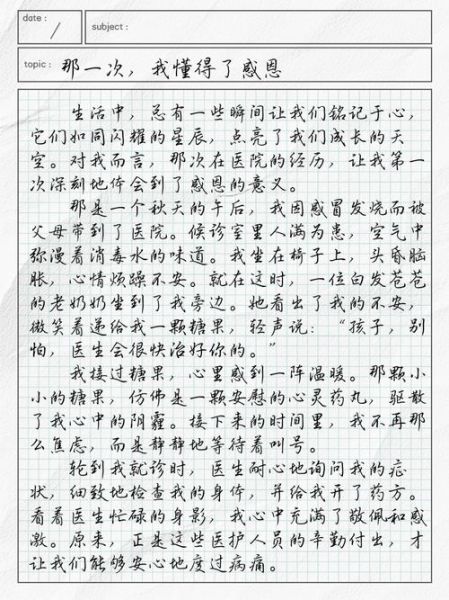 date :
subject :
topic : 那一次，我懂得了感恩
生活中，总有一些瞬间让我们铭记于心，
它们如同闪耀的星辰，点亮了我们成长的天
空。对我而言，那次在医院的经历，让我第一
次深刻地体会到了感恩的意义。
那是一个秋天的午后，我因感冒发烧而被
父母带到了医院。候诊室里人满为患，空气中
弥漫着消毒水的味道。我坐在椅子上，头昏脑
胀，心情烦躁不安。就在这时，一位白发苍苍
的老奶奶坐到了我旁边。她看出了我的不安，
微笑着递给我一颗糖果，轻声说：“孩子，别
怕，医生会很快治好你的。”
我接过糖果，心里感到一阵温暖。那颗小
小的糖果，仿佛是一颗安慰的心灵药丸，驱散
了我心中的阴霾。接下来的时间里，我不再那
么焦虑，而是静静地等待着叫号。
轮到我就诊时，医生耐心地询问我的症
状，细致地检查我的身体，并给我开了药方。
看着医生忙碌的身影，我心中充满了敬佩和感
激。原来，正是这些医护人员的辛勤付出，才
让我们能够安心地度过病痛。